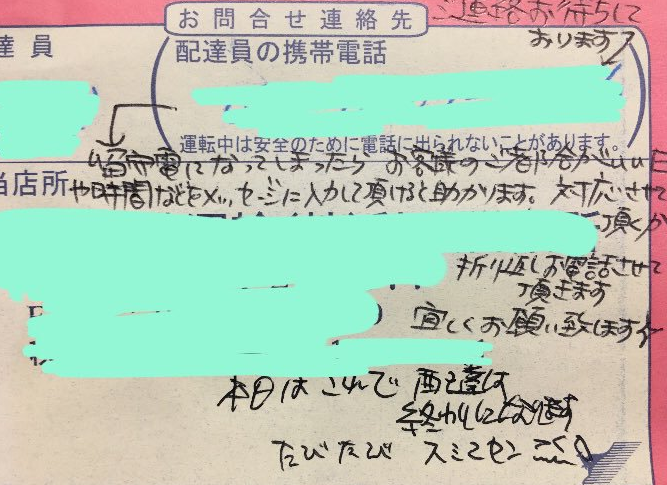 ご連絡お待ちして
おります
お問合せ連絡先
達員
配達員の携帯電話
運転中は安全のために電話に出られないことがあります。
留守電になってしまったら お客様のご都合がいい日
当店所
や時間などをメッセージに入力して頂けると助かります。対応させて
頂くか
折り返しお電話させて
頂きます
宜しくお願い致します
本日は これで 配達は
終わりになります
たびたび スミマセン